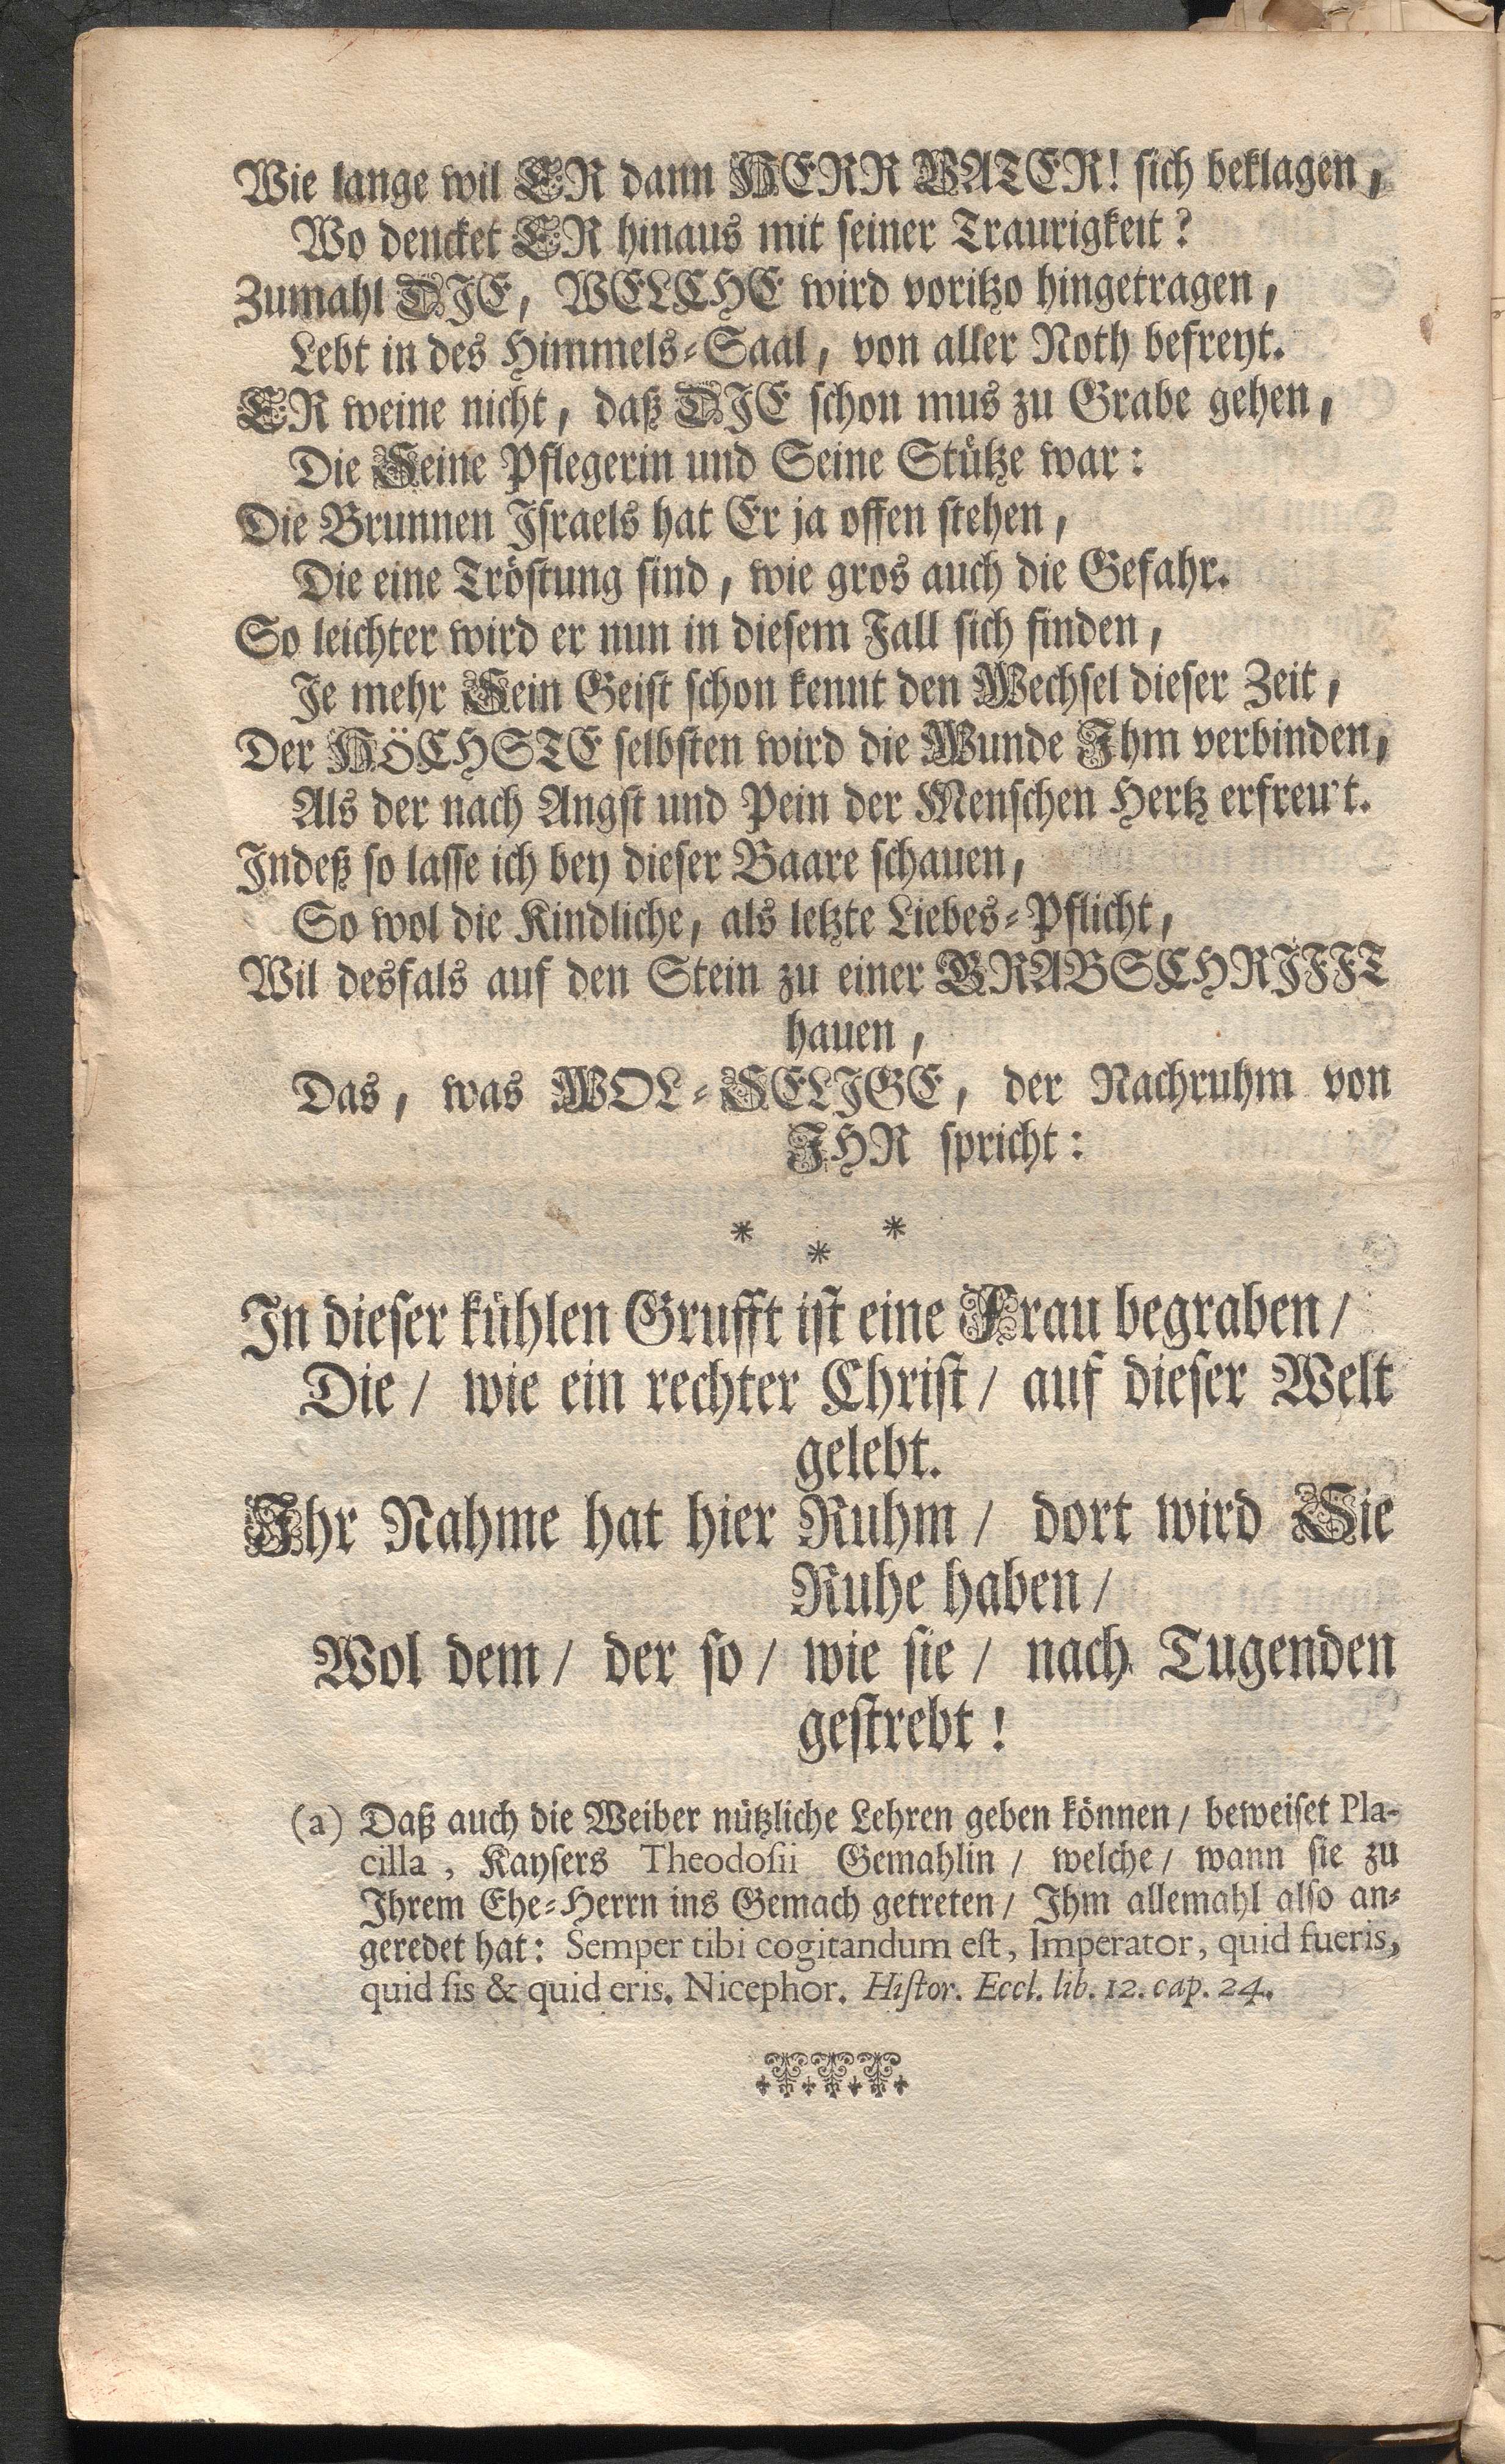 Wie lange wil ER dann HERR VATER! sich beklagen,
Wo dencket ER hinaus mit seiner Traurigkeit?
Zumahl DIE, WELCHE wird voritzo hingetragen,
Lebt in des Himmels-Saal, von aller Noth befreyt.
ER weine nicht, daß DIE schon mus zu Grabe gehen,
Die Seine Pflegerin und Seine Stütze war:
Die Brunnen Israels hat Er ja offen stehen,
Die eine Tröstung sind, wie gros auch die Gefahr.
So leichter wird er nun in diesem Fall sich finden,
Je mehr Sein Geist schon kennt den Wechsel dieser Zeit,
Der HÖCHSTE selbsten wird die Wunde Ihm verbinden,
Als der nach Angst und Pein der Menschen Hertz erfreu't.
Indeß so lasse ich bey dieser Baare schauen,
So wol die Kindliche, als letzte Liebes-Pflicht,
Wil desfals auf den Stein zu einer GRABSCHRIFFT
hauen,
Das, was WOL-SELIGE, der Nachruhm von
IHR spricht:
* * *
In dieser kühlen Grufft ist eine Frau begraben/
Die/ wie ein rechter Christ/ auf dieser Welt
gelebt.
Ihr Nahme hat hier Ruhm/ dort wird Sie
Ruhe haben/
Wol dem/ der so/ wie sie/ nach Tugenden
gestrebt!
(a) Daß auch die Weiber nützliche Lehren geben können/ beweiset Pla-
cilla, Kaysers Theodosii Gemahlin/ welche/ wann sie zu
Ihrem Ehe-Herrn ins Gemach getreten/ Ihm allemahl also an-
geredet hat: Semper tibi cogitandum est, Imperator, quid fueris,
quid sis & quid eris. Nicephor. Histor. Eccl. lib. 12. cap. 24.